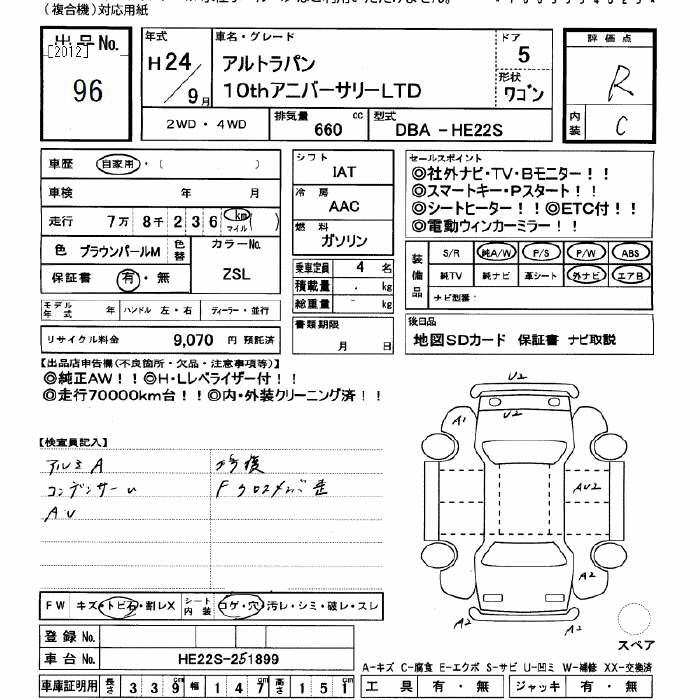 (複合機)対応用紙
出品No.
[2012]
96
年式
H24/9月
車名・グレード
アルトラパン
10thアニバーサリーLTD
ドア
5
形状
ワゴン
評価点
R
内装
C
2WD・4WD
排気量 660 cc
型式 DBA-HE22S
車歴 自家用・( )
車検 年 月
走行 7万 8千 2 3 6 km マイル ( )
色 ブラウンパールM 色替
カラーNo.
ZSL
保証書 有・無
モデル年式 年 ハンドル 左・右 ディーラー・並行
リサイクル料金 9,070 円 預託済
シフト
IAT
冷房
AAC
燃料
ガソリン
乗車定員 4 名
積載量 kg
総重量 kg
書類期限
月 日
セールスポイント
◎社外ナビ・TV・Bモニター!!
◎スマートキー・Pスタート!!
◎シートヒーター!!◎ETC付!!
◎電動ウィンカーミラー!!
装備品
S/R 純A/W P/S P/W ABS
純TV 純ナビ 革シート 外ナビ エアB
ナビ型番
後日品
地図SDカード 保証書 ナビ取説
【出品店申告欄(不良箇所・欠品・注意事項等)】
◎純正AW!!◎H・Lレベライザー付!!
◎走行70000km台!!◎内・外装クリーニング済!!
【検査員記入】
アルミ A
コンデンサー U
AU
修復
F クロスメンバ 歪
U2
U2
A1
AU2
A2
A2
A2
FW キズ・トビ石・割レX
シート内装 コゲ・穴・汚レ・シミ・破レ・スレ
登録No.
車台No. HE22S-251899
車庫証明用 長さ 339cm 幅 147cm 高さ 151cm
スペア
A-キズ C-腐食 E-エクボ S-サビ U-凹ミ W-補修 XX-交換済
工具 有・無 ジャッキ 有・無